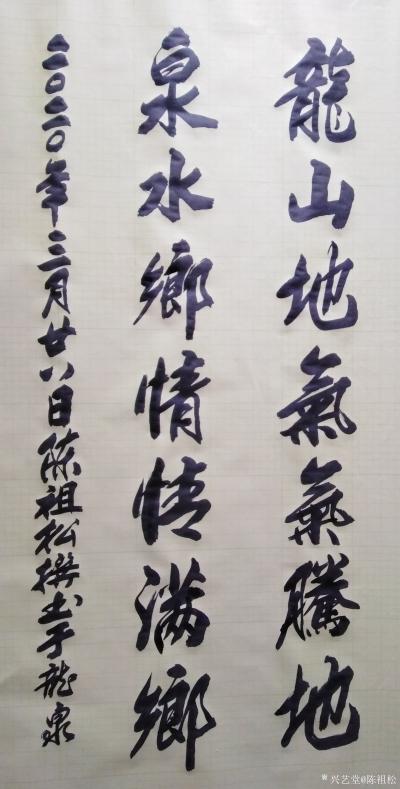 龍山地氣氣騰地
泉水鄉情情满鄉
二〇二〇年三月廿八日陈祖松撰书于龙泉
*兴艺堂@陈祖松